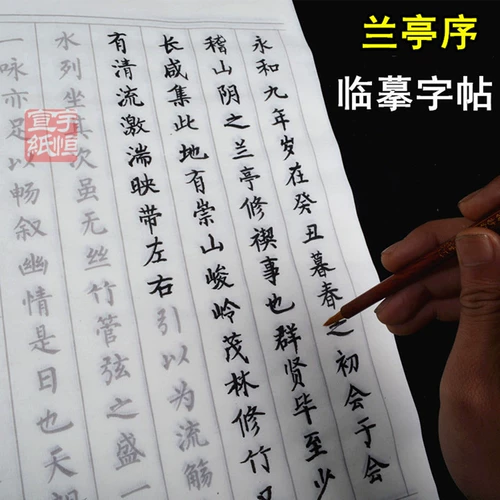 兰亭序
临摹字帖
永和九年岁在癸丑暮春之初会于会
稽山阴之兰亭修禊事也群贤毕至少
长咸集此地有崇山峻岭茂林修竹
有清流激湍映带左右引以为流觞
水列坐其次虽无丝竹管弦之盛一
一咏亦足以畅叙幽情是日也天朗
于恒
宣紙